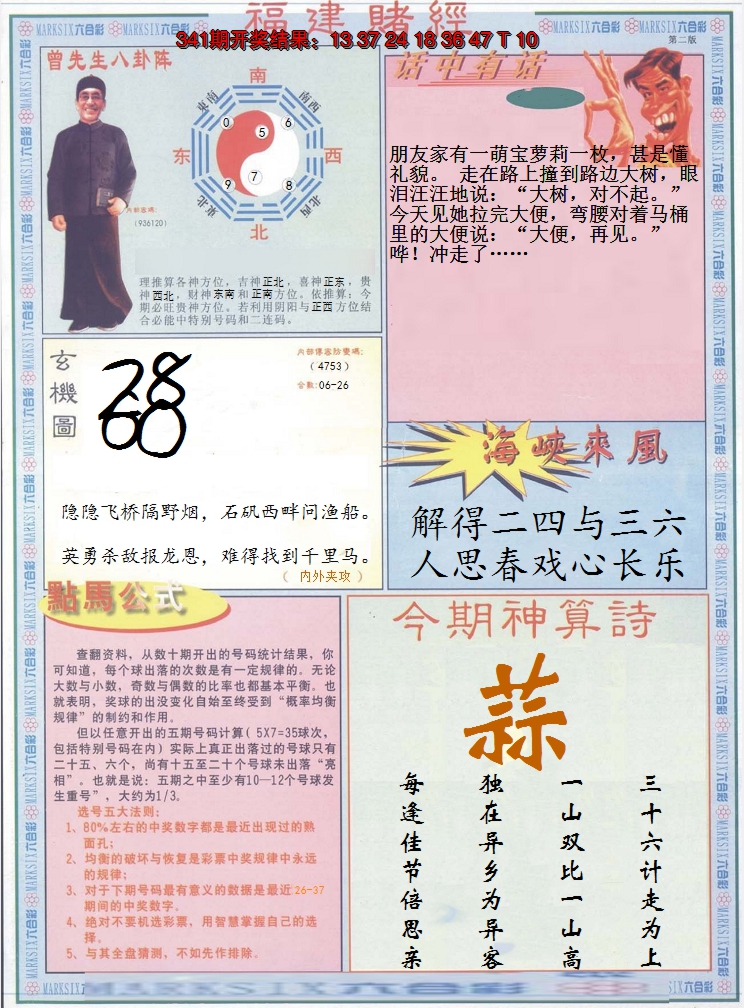 福建賭經
341期开奖结果：13 37 24 18 36 47 T 10
MARKSIX六合彩
第二版
曾先生八卦阵
南
东南
西南
0
5
6
东
西
9
7
8
东北
西北
北
内部密碼:
(936120)
理推算各神方位，吉神正北，喜神正东，贵
神西北，财神东南和正南方位。依推算：今
期必旺贵神方位。若利用阴阳与正西方位结
合必能中特别号码和二连码。
话中有话
朋友家有一萌宝萝莉一枚，甚是懂
礼貌。 走在路上撞到路边大树，眼
泪汪汪地说：“大树，对不起。”
今天见她拉完大便，弯腰对着马桶
里的大便说：“大便，再见。”
哗！冲走了……
玄機圖
28
60
(4753)
合數:06-26
隐隐飞桥隔野烟，石矶西畔问渔船。
英勇杀敌报龙恩，难得找到千里马。
（ 内外夹攻 ）
海峽來風
解得二四与三六
人思春戏心长乐
點馬公式
查翻资料，从数十期开出的号码统计结果，你
可知道，每个球出落的次数是有一定规律的。无论
大数与小数，奇数与偶数的比率也都基本平衡。也
就表明，奖球的出没变化自始至终受到“概率均衡
规律”的制约和作用。
但以任意开出的五期号码计算( 5X7=35球次，
包括特别号码在内) 实际上真正出落过的号球只有
二十五、六个，尚有十五至二十个号球未出落“亮
相”。也就是说：五期之中至少有10—12个号球发
生重号”，大约为1/3。
选号五大法则:
1、80%左右的中奖数字都是最近出现过的熟
面孔；
2、均衡的破坏与恢复是彩票中奖规律中永远
的规律；
3、对于下期号码最有意义的数据是最近26-37
期间的中奖数字。
4、绝对不要机选彩票，用智慧掌握自己的选
择。
5、与其全盘猜测，不如先作排除。
今期神算詩
蒜
三十六计走为上
一山双比一山高
独在异乡为异客
每逢佳节倍思亲